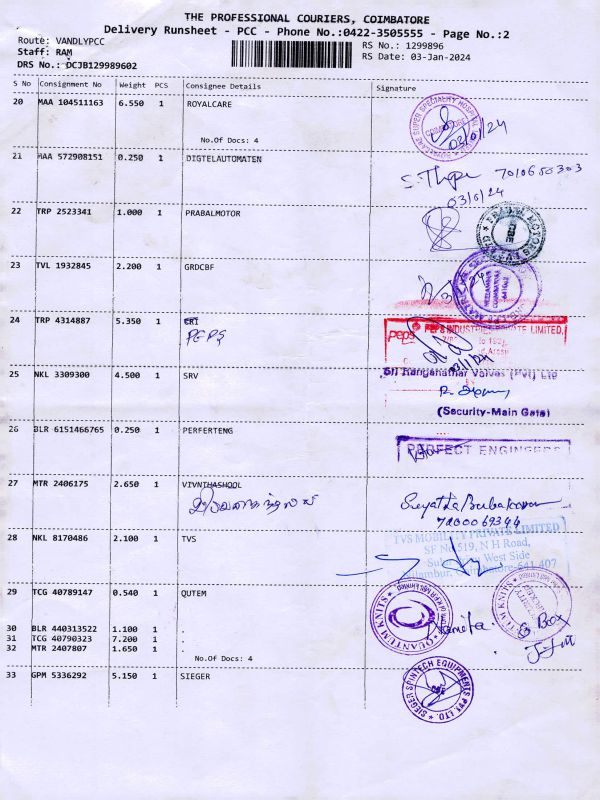 THE PROFESSIONAL COURIERS, COIMBATORE
Delivery Runsheet - PCC - Phone No.:0422-3505555 - Page No.:2
Route: VANDLYPCC
Staff: RAM
DRS No.: DCJB129989602
RS No.: 1299896
RS Date: 03-Jan-2024
S No Consignment No Weight PCS Consignee Details Signature
20 MAA 104511163 6.550 1 ROYALCARE
No.Of Docs: 4
03/01/24
21 MAA 572908151 0.250 1 DIGTELAUTOMATEN
7010650303
22 TRP 2523341 1.000 1 PRABALMOTOR
23 TVL 1932845 2.200 1 GRDCBF
24 TRP 4314887 5.350 1 CRI
PEPS
peps PEPS INDUSTRIES PRIVATE LIMITED,
25 NKL 3309300 4.500 1 SRV
Sri Ranganathar Valves (Pvt) Ltd
(Security-Main Gate)
26 BLR 6151466765 0.250 1 PERFERTENG
PERFECT ENGINEERS
27 MTR 2406175 2.650 1 VIVNTHASHOOL
28 NKL 8170486 2.100 1 TVS
TVS MOBILITY PRIVATE LIMITED
SF No 519, N H Road,
West Side
Coimbatore-641 407
29 TCG 40789147 0.540 1 QUTEM
QUANTUM KNITS
30 BLR 440313522 1.100 1 .
31 TCG 40790323 7.200 1 .
32 MTR 2407807 1.650 1 .
No.Of Docs: 4
33 GPM 5336292 5.150 1 SIEGER
SIEGER SPINTECH EQUIPMENTS PVT. LTD.